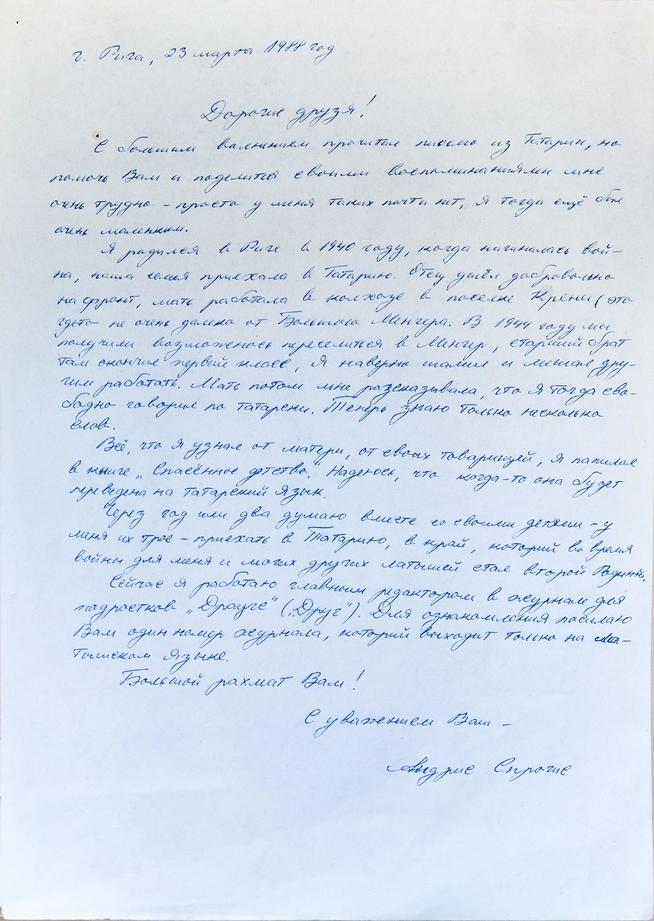 г. Рига, 23 марта 1988 год
Дорогие друзья!
С большим волнением прочитал письмо из Татарии, но
помочь Вам и поделится своими воспоминаниями мне
очень трудно - просто у меня таких почти нет, я тогда ещё был
очень маленьким.
Я родился в Риге в 1940 году, когда начиналась вой-
на, наша семья приехала в Татарию. Отец ушёл добровольно
на фронт, мать работала в колхозе в поселке (это
где-то не очень далеко от Большого Менгера. В 1944 году мы
получили возможность переселится в Менгер, старший брат
там окончил первый класс, я наверно шалил и мешал дру-
гим работать. Мать потом мне рассказывала, что я тогда сво-
бодно говорил по татарски. Теперь знаю только несколько
слов.
Всё, что я узнал от матери, от своих товарищей, я написал
в книге „Спасённое детство". Надеюсь, что когда-то она будет
переведена на татарский язык.
Через год или два думаю вместе со своими детями - у
меня их трое - приехать в Татарию, в край, который во время
войны для меня и многих других латышей стал второй Родиной.
Сейчас я работаю главным редактором в журнале для
подростков „Драугс" („Друг"). Для ознакомления посылаю
Вам один номер журнала, который выходит только на ла-
тышском языке.
Большой рахмат Вам!
С уважением Ваш -
Андрис Спрогис